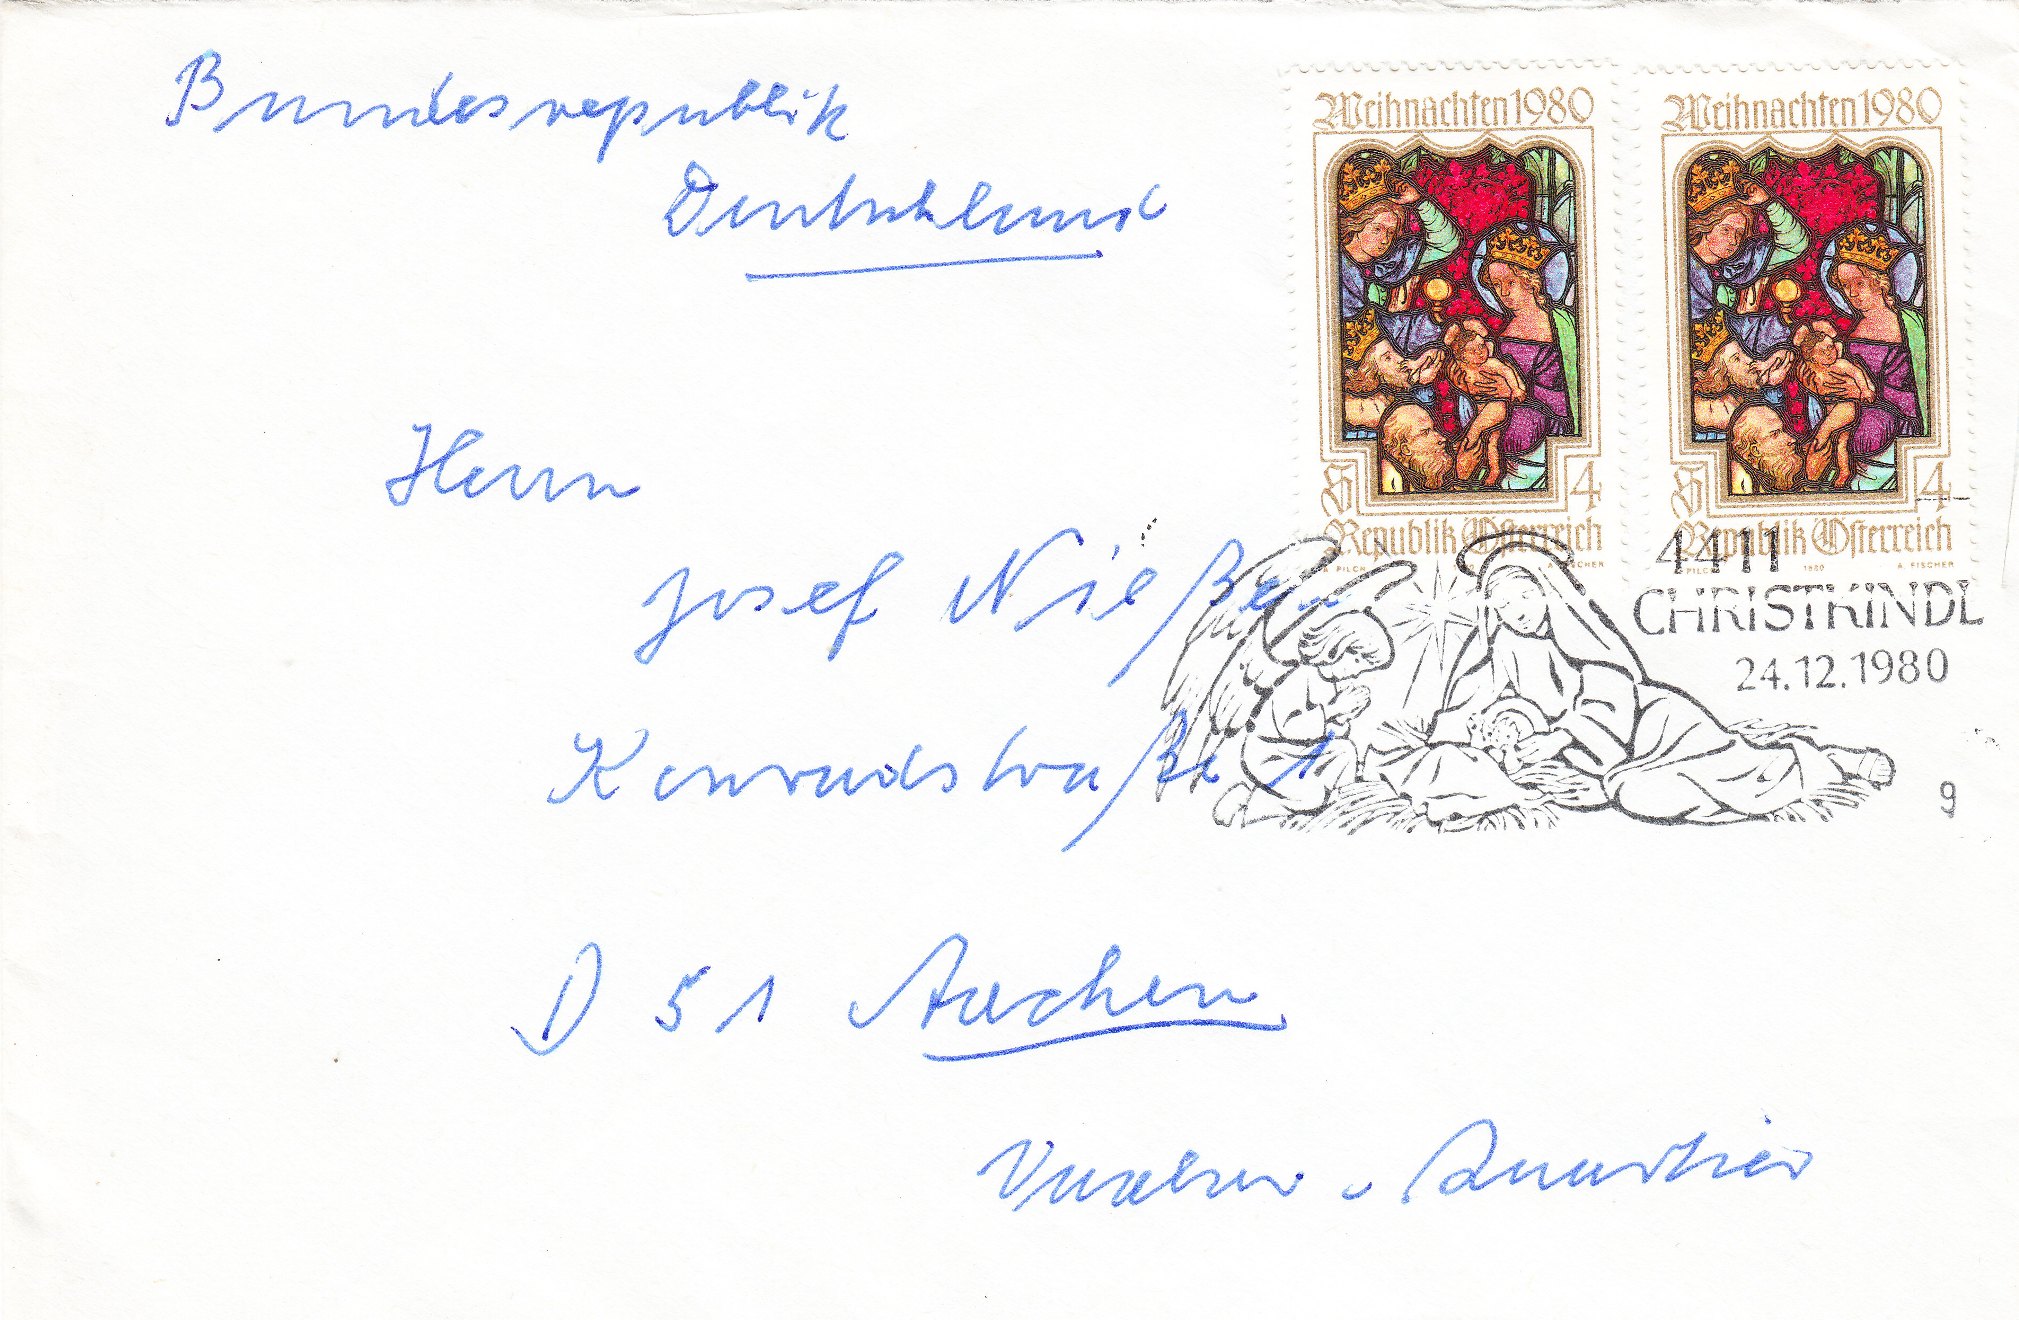 Bundesrepublik
Deutschland
Weihnachten 1980
S 4
Republik Österreich
A. PILCH 1980 A. FISCHER
Weihnachten 1980
S 4
Republik Österreich
PILCH 1980 A. FISCHER
4411
CHRISTKINDL
24.12.1980
9
Herrn
Josef Nießen
Konradstraße 1
D 51 Aachen
Vaalser - Quartier